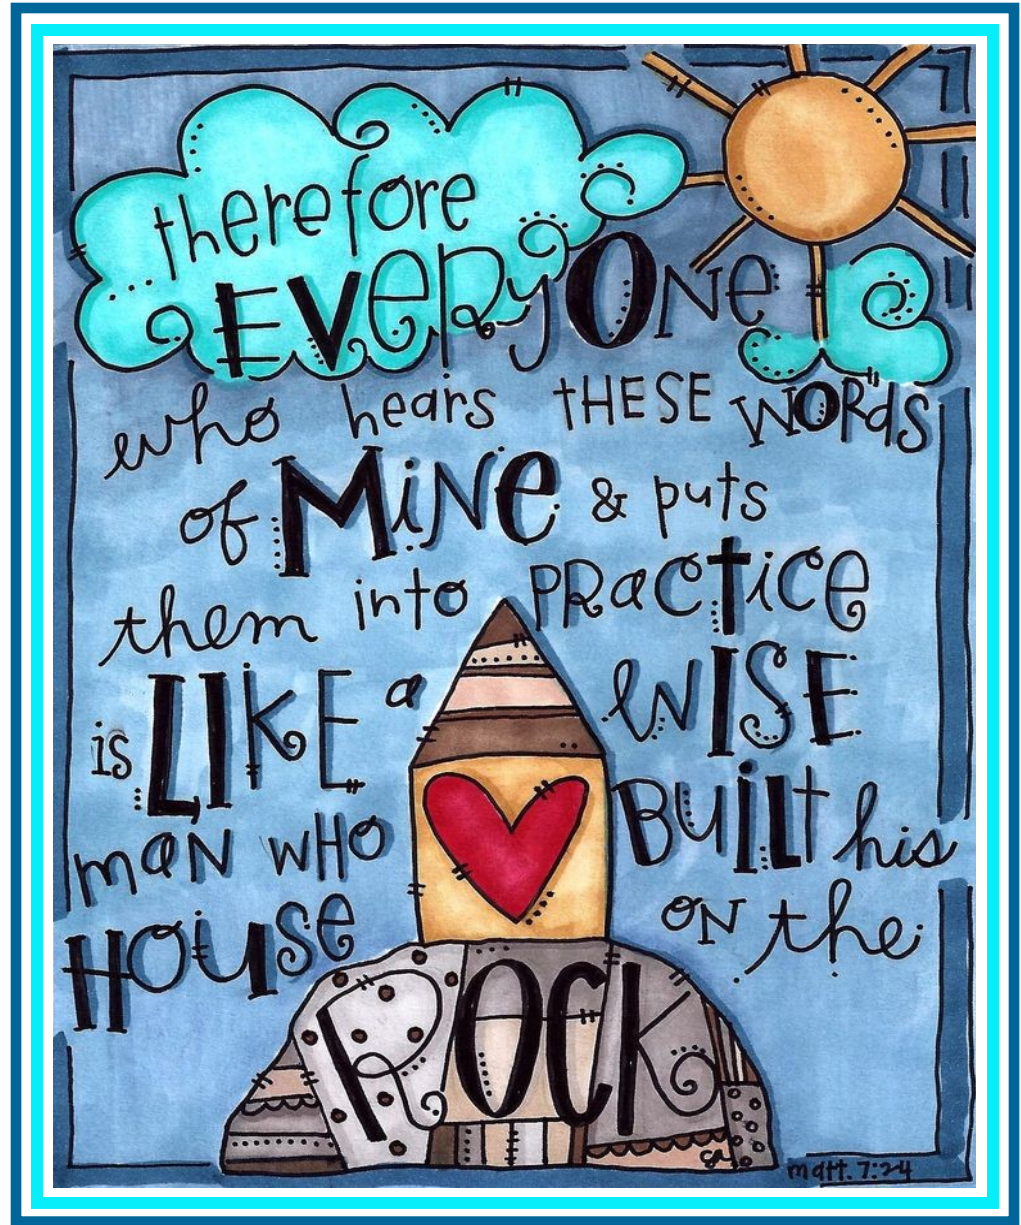 therefore
EVERYONE
who hears tHESE WORds
of MiNe & puts
them into PRacticE
is LIKE a WISE
maN wHO BUILt his
HOUSe ON the
ROCK
matt. 7:24